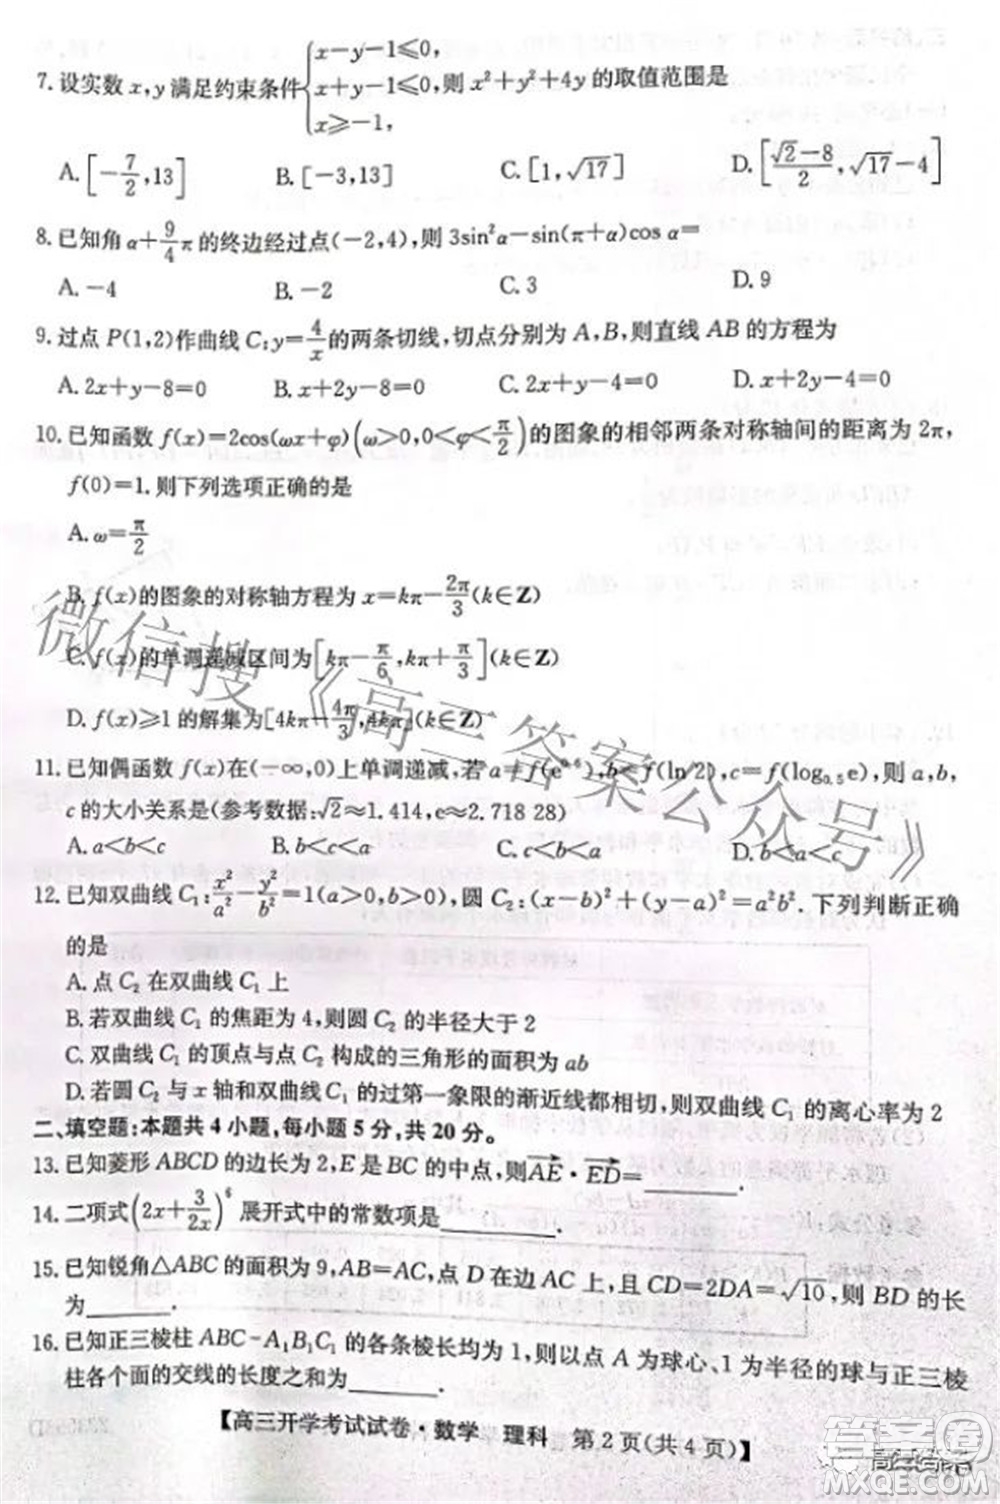 7. 设实数 x,y 满足约束条件{x-y-1⩽0, x+y-1⩽0, x⩾-1, 则 x²+y²+4y 的取值范围是
A. [-7/2,13] B. [-3,13] C. [1,√17] D. [(√2-8)/2,√17-4]
8. 已知角 α+9/4π 的终边经过点(-2,4),则 3sin²α-sin(π+α)cos α=
A. -4 B. -2 C. 3 D. 9
9. 过点 P(1,2)作曲线 C:y=4/x 的两条切线,切点分别为 A,B,则直线 AB 的方程为
A. 2x+y-8=0 B. x+2y-8=0 C. 2x+y-4=0 D. x+2y-4=0
10. 已知函数 f(x)=2cos(ωx+φ)(ω>0,0<φ<π/2)的图象的相邻两条对称轴间的距离为 2π,
f(0)=1. 则下列选项正确的是
A. ω=π/2
B. f(x)的图象的对称轴方程为 x=kπ-2π/3(k∈Z)
C. f(x)的单调递减区间为[kπ-π/6,kπ+π/3](k∈Z)
D. f(x)⩾1 的解集为[4kπ-4π/3,4kπ](k∈Z)
11. 已知偶函数 f(x)在(-∞,0)上单调递减,若 a=f(e ),b=f(ln 2),c=f(log₀.₅e),则 a,b,
c 的大小关系是(参考数据:√2≈1.414,e≈2.718 28)
A. a<b<c B. b<c<a C. c<b<a D. b<a<c
12. 已知双曲线 C₁:x²/a²-y²/b²=1(a>0,b>0),圆 C₂:(x-b)²+(y-a)²=a²b². 下列判断正确
的是
A. 点 C₂ 在双曲线 C₁ 上
B. 若双曲线 C₁ 的焦距为 4,则圆 C₂ 的半径大于 2
C. 双曲线 C₁ 的顶点与点 C₂ 构成的三角形的面积为 ab
D. 若圆 C₂ 与 x 轴和双曲线 C₁ 的过第一象限的渐近线都相切,则双曲线 C₁ 的离心率为 2
二、填空题:本题共 4 小题,每小题 5 分,共 20 分。
13. 已知菱形 ABCD 的边长为 2,E 是 BC 的中点,则AE→·ED→=________.
14. 二项式(2x+3/2x)⁶ 展开式中的常数项是________.
15. 已知锐角△ABC 的面积为 9,AB=AC,点 D 在边 AC 上,且 CD=2DA=√10,则 BD 的长
为________.
16. 已知正三棱柱 ABC-A₁B₁C₁ 的各条棱长均为 1,则以点 A 为球心、1 为半径的球与正三棱
柱各个面的交线的长度之和为________.
【高三开学考试试卷·数学 理科 第 2 页(共 4 页)】
微信搜《高三答案公众号》
答案圈
MXQE.COM